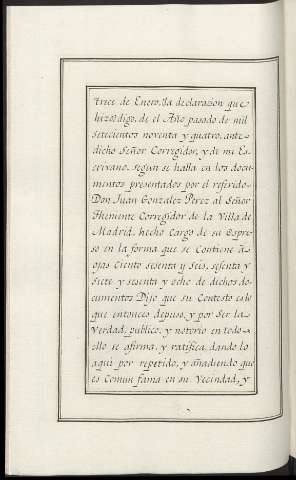 trece de Enero, la declaracion que
hizo, digo, de el Año pasado de mil
setecientos noventa y quatro, ante
dicho Señor Corregidor, y de mi Es-
crivano, segun se halla en los docu-
mentos presentados por el referido
Don Juan Gonzalez Perez al Señor
Theniente Corregidor de la Villa de
Madrid, hecho Cargo de su Espre-
so en la forma que se Contiene à s
ojas Ciento sesenta y Seis, sesenta y
siete y sesenta y ocho de dichos do-
cumentos Dijo que su Contesto es lo
que entonces depuso, y por Ser la
Verdad, publico, y notorio en todo
ello se afirma, y ratifica, dando lo
aqui por repetido, y añadiendo que
es Comun fama en su Vecindad, y